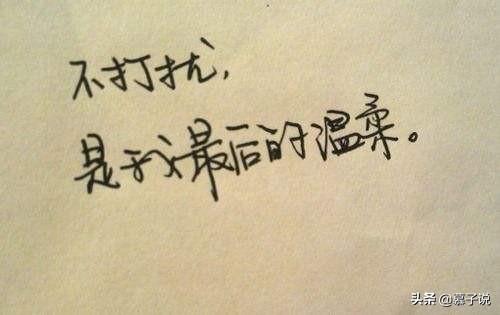 不打扰,
是我最后的温柔。
头条 @慕子说